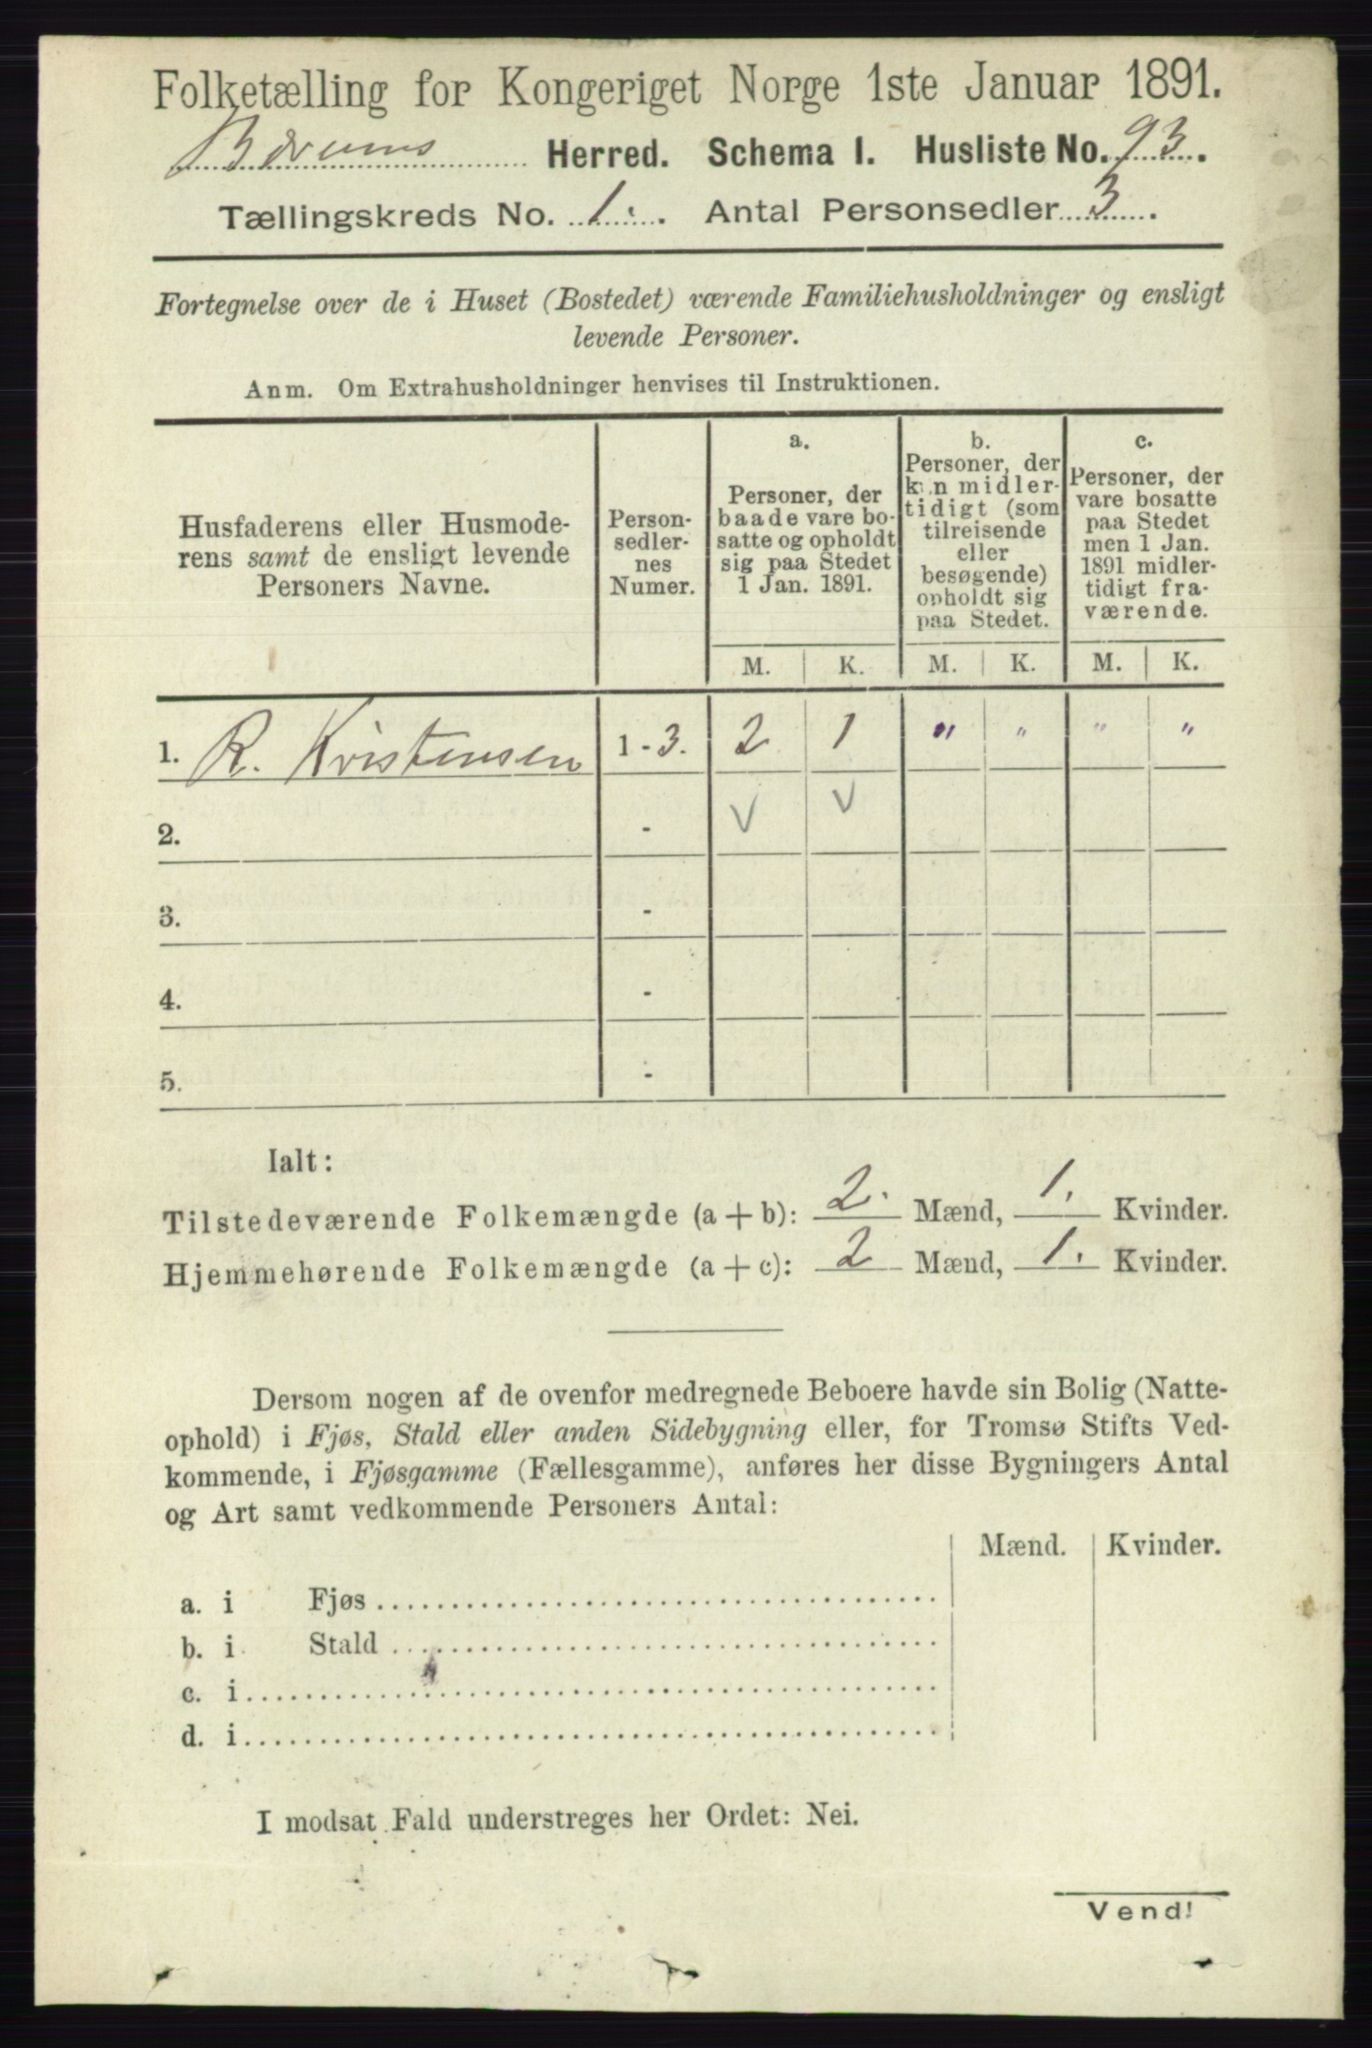 Folketælling for Kongeriget Norge 1ste Januar 1891.
Bærums Herred. Schema I. Husliste No. 93.
Tællingskreds No. 1. Antal Personsedler 3.
Fortegnelse over de i Huset (Bostedet) værende Familiehusholdninger og ensligt
levende Personer.
Anm. Om Extrahusholdninger henvises til Instruktionen.
Husfaderens eller Husmode-
rens samt de ensligt levende
Personers Navne.
Person-
sedler-
nes
Numer.
a.
Personer, der
baade vare bo-
satte og opholdt
sig paa Stedet
1 Jan. 1891.
b.
Personer, der
kun midler-
tidigt (som
tilreisende
eller
besøgende)
opholdt sig
paa Stedet.
c.
Personer, der
vare bosatte
paa Stedet
men 1 Jan.
1891 midler-
tidigt fra-
værende.
M. K. M. K. M. K.
1. R. Kristensen 1 - 3. 2 1 " " " "
2. - V V
3. -
4. -
5. -
Ialt:
Tilstedeværende Folkemængde (a + b): 2. Mænd, 1. Kvinder.
Hjemmehørende Folkemængde (a + c): 2 Mænd, 1. Kvinder.
Dersom nogen af de ovenfor medregnede Beboere havde sin Bolig (Natte-
ophold) i Fjøs, Stald eller anden Sidebygning eller, for Tromsø Stifts Ved-
kommende, i Fjøsgamme (Fællesgamme), anføres her disse Bygningers Antal
og Art samt vedkommende Personers Antal:
Mænd. Kvinder.
a. i Fjøs
b. i Stald
c. i
d. i
I modsat Fald understreges her Ordet: Nei.
Vend!